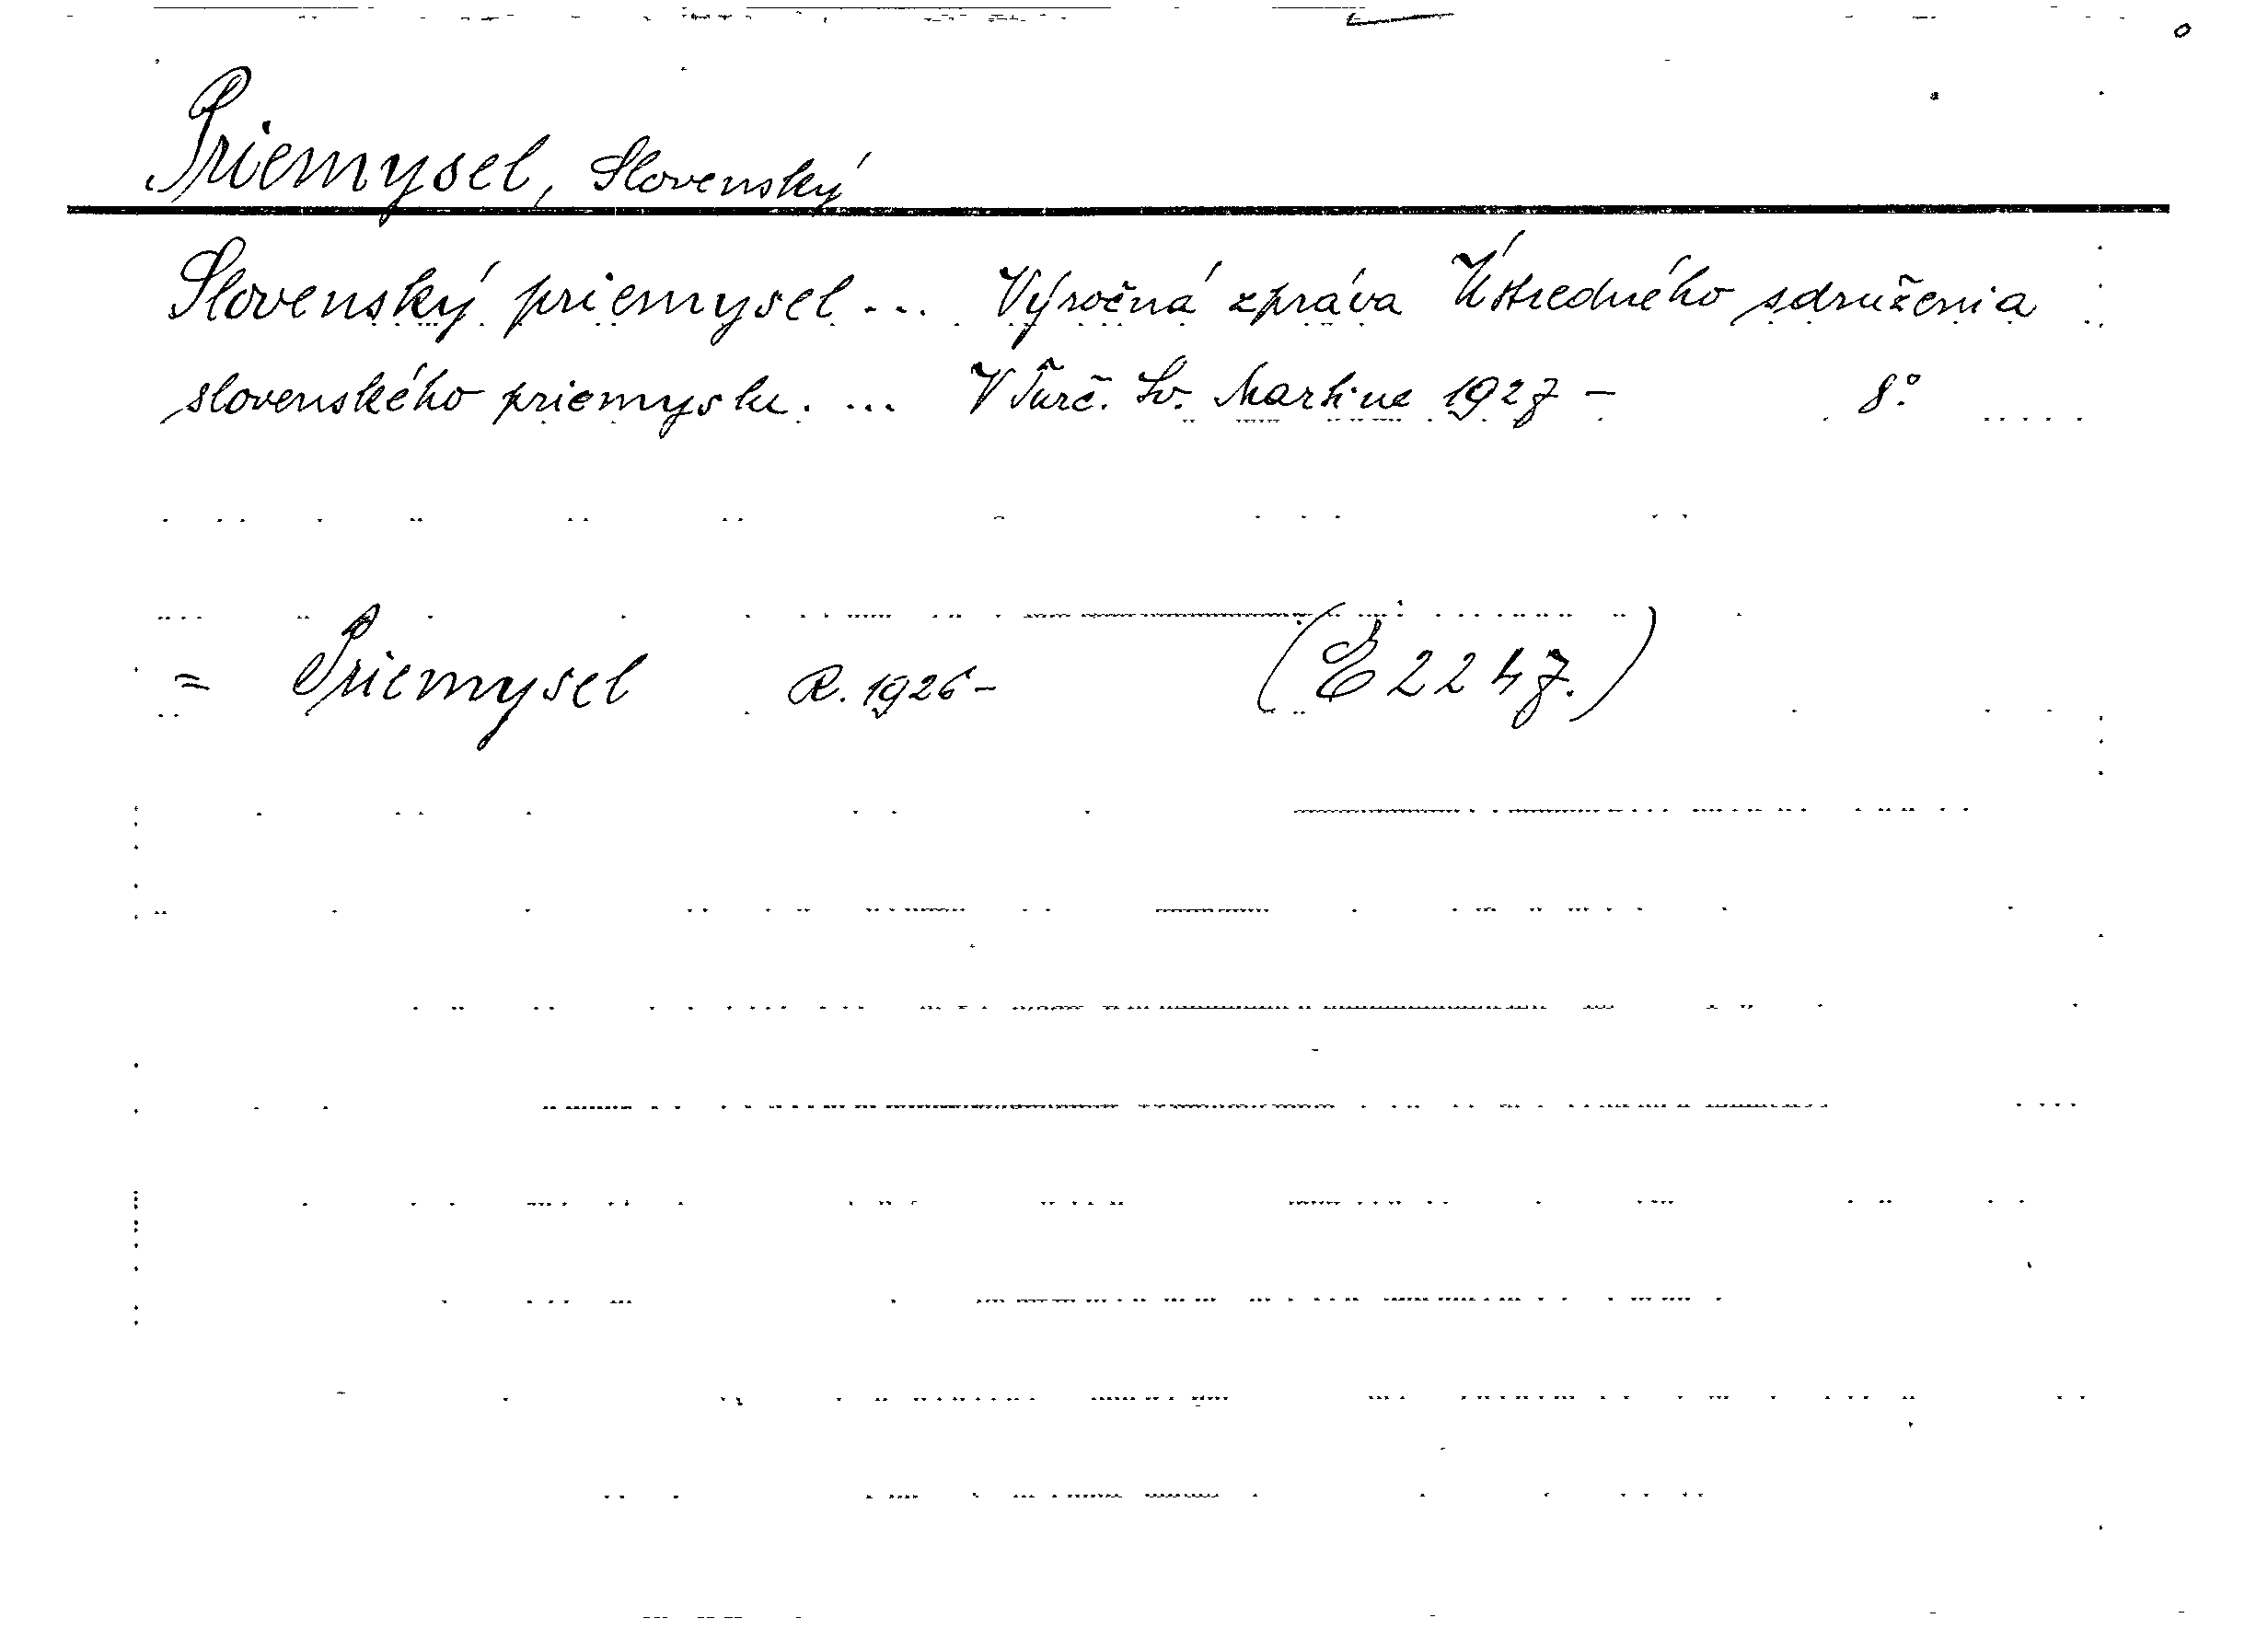 Priemysel, Slovenský
Slovenský priemysel ... Výročná zpráva Ústredného sdruženia
slovenského priemyslu. ... V Turč. Sv. Martine 1927 - 8°
= Priemysel R. 1926 - (E 2247.)